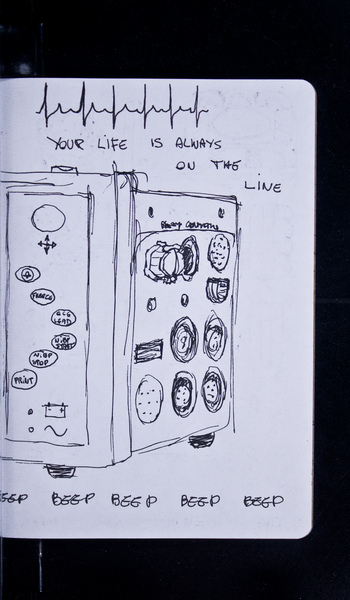 YOUR LIFE IS ALWAYS
ON THE
LINE
FREEZE
ECG
LEAD
N.BP
START
N.BP
STOP
PRINT
BEEP BEEP BEEP BEEP